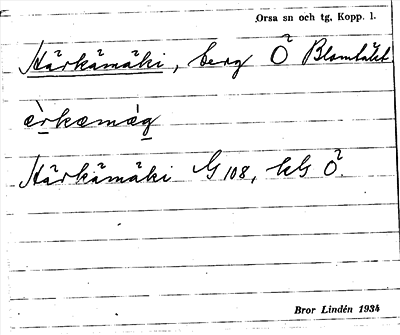 Orsa sn och tg, Kopp. l.
Härkämäki, berg Ö Blomtäkt
ærkæmæg
Härkämäki G 108, kG Ö.
Bror Lindén 1934